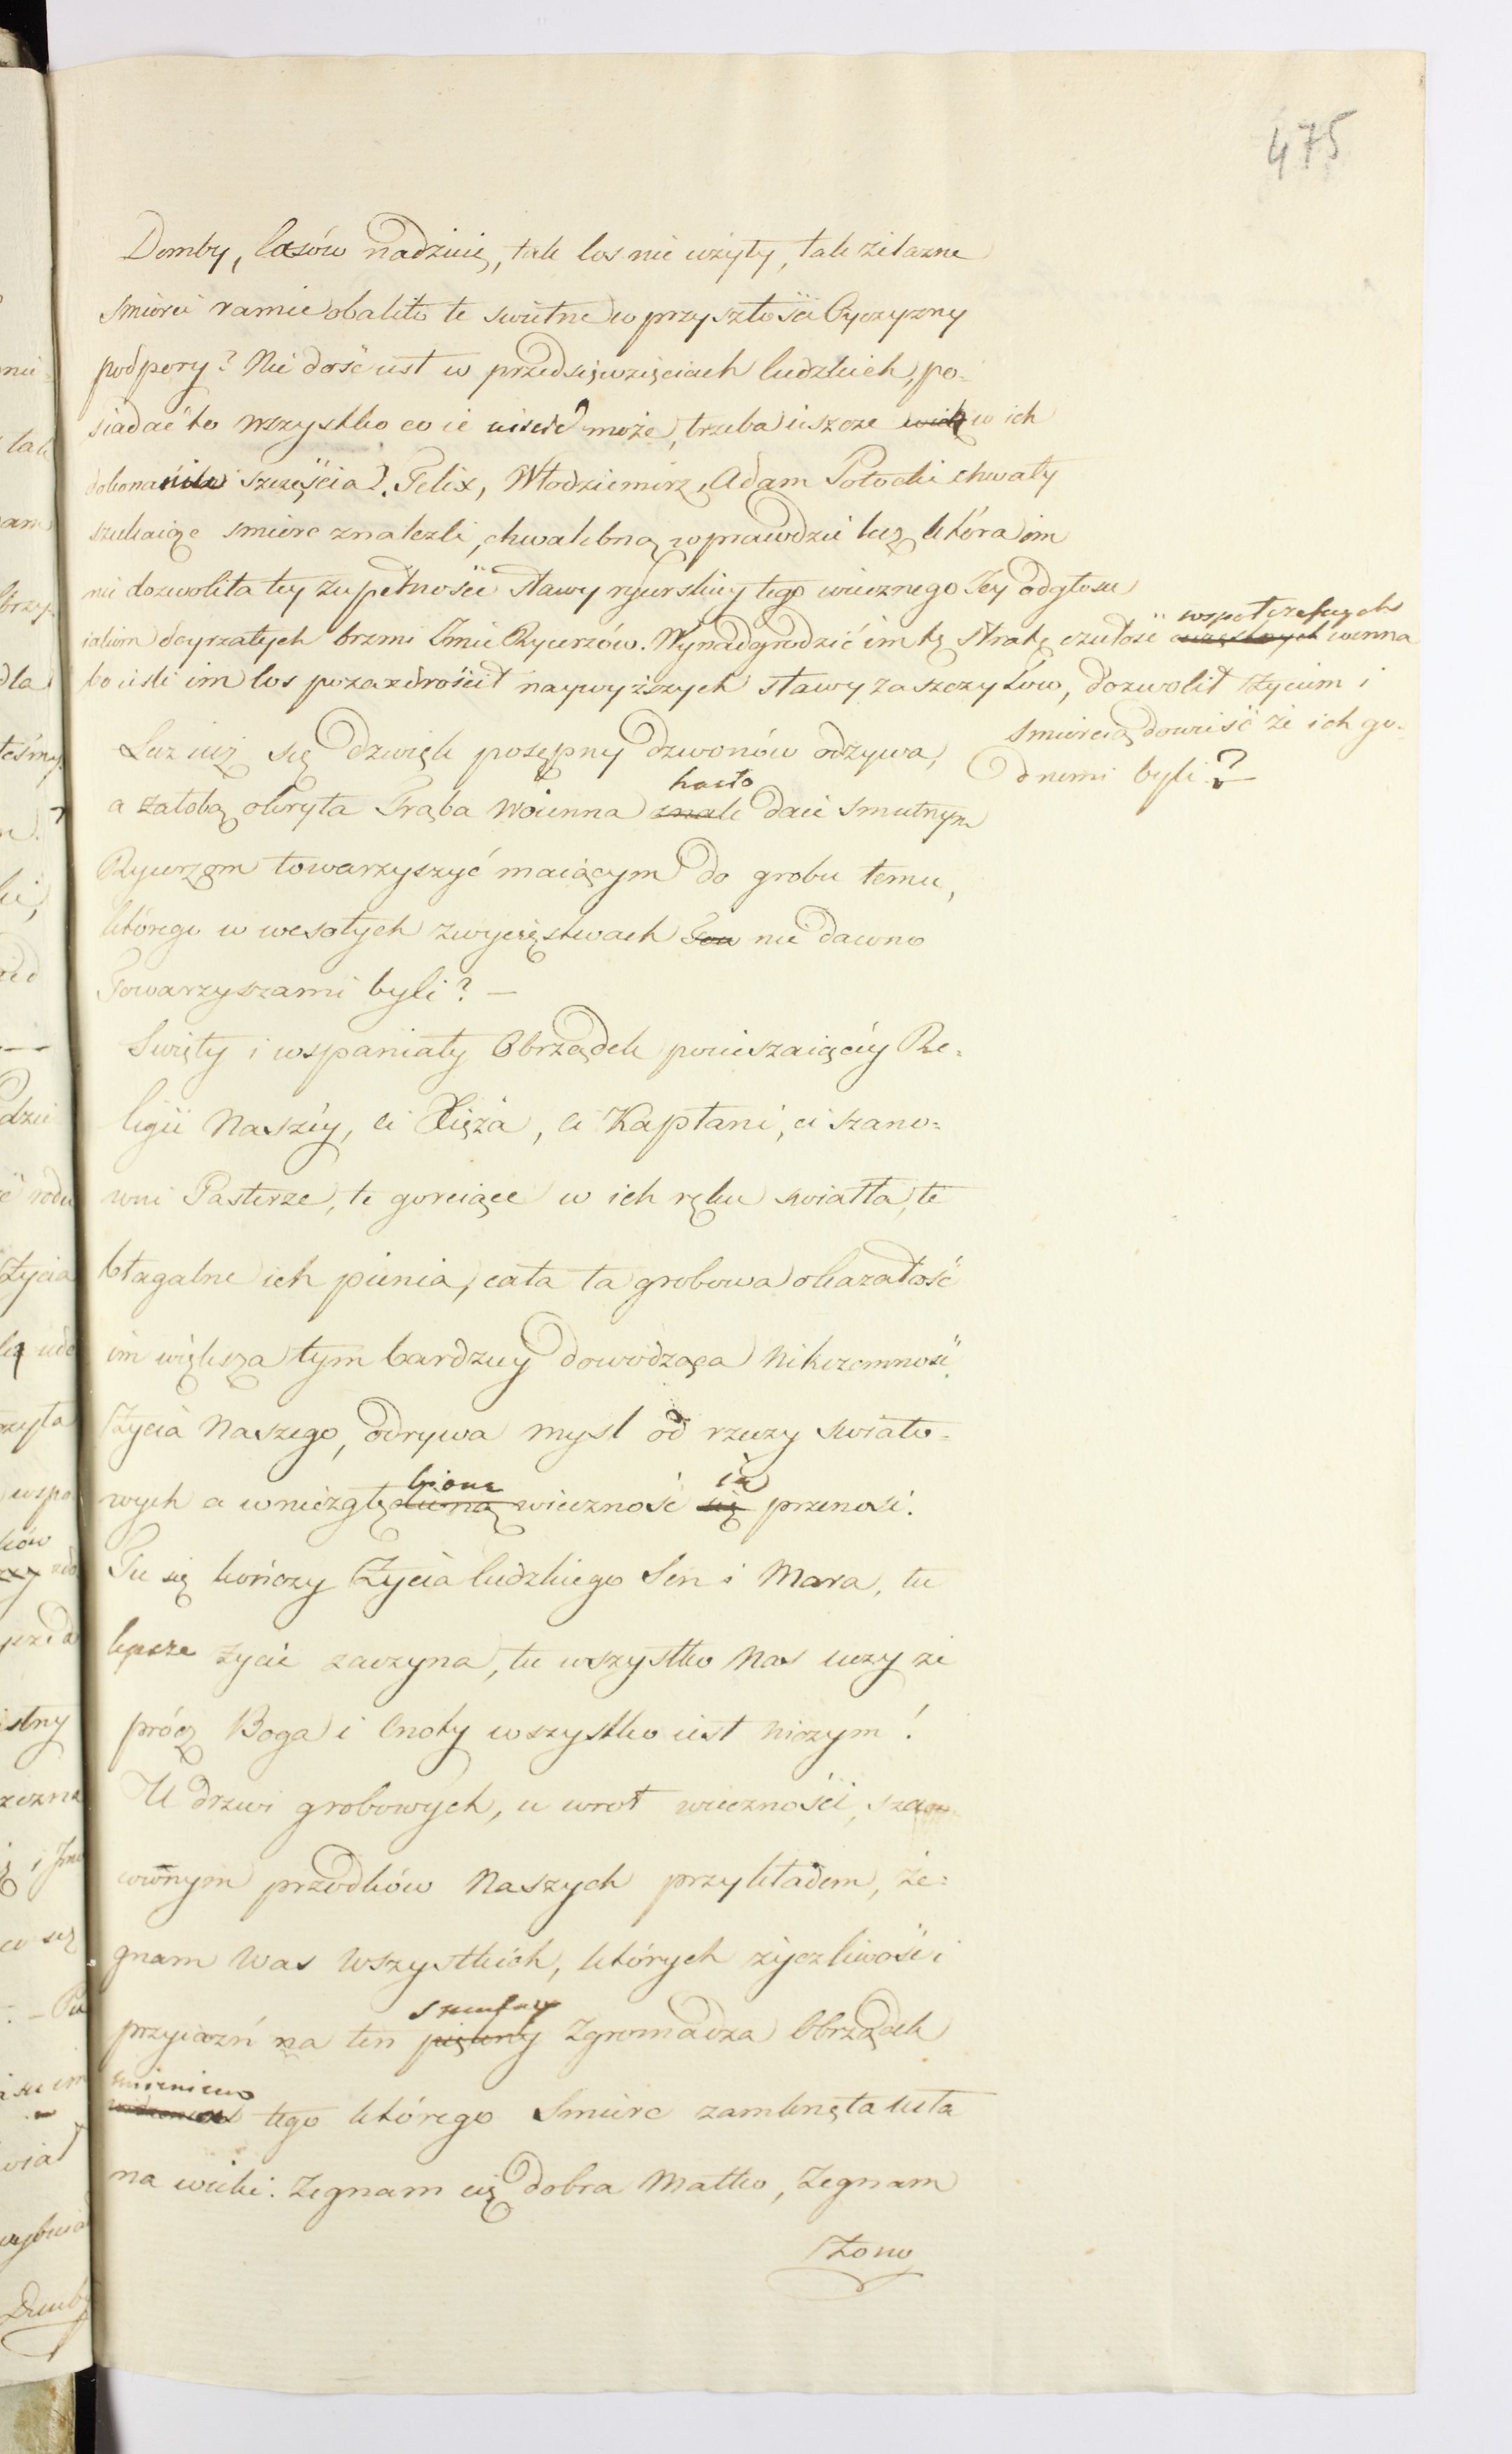 475
Domby, lasów nadzieię, tak los nie użyty, tak żelazne
śmierci ramie obaliło te swietne w przyszłości Oyczyzny
podpory? Nie dość iest w przedsięwzięciach ludzkich, po=
siadać to wszystko co ie uiścić może, trzeba ieszcze w ich
dokonaniu szczęścia? Felix, Włodziemirz, Adam Potocki chwały
szukaiąc smierc znalezli, chwalebną wprawdzie lecz która im
nie dozwoliła tey zupełności sławy rycerskiey tego wiecznego Jey odgłosu
iakiem doyrzałych brzmi Imie Rycerzów. Wynadgrodzić im tę stratę czułość współczesnych winna
bo ieśli im los pozazdrościł naywyższych sławy zaszczytów, dozwolił życiem i
śmiercią dowieść że ich go=
dnemi byli?—
Lecz iuż się dzwięk posępny dzwonów odzywa,
hasło
a żałobą okryta Trąba woienna znak daie smutnym
Rycerzom towarzyszyć maiącym do grobu temu,
którego w wesołych zwycięstwach nie dawno
Towarzyszami byli? —
Swięty i wspaniały Obrządek pocieszaiącéy Re=
ligii Naszéy, ci Xięża, ci Kapłani, ci szano=
wni Pasterze, te goreiące w ich ręku swiatła, te
błagalne ich pienia, cała ta grobowa okazałość
im większa tym bardziey dowodząca nikczemność
Życia Naszego, odrywa mysl od rzeczy swiato=
bioną ią
wych a w niezgłębną wieczność się przenosi.
Tu się kończy Życia ludzkiego Sen i Mara, tu
lepsze życie zaczyna, tu wszystko Nas uczy że
prócz Boga i Cnoty wszystko iest niczym!
U drzwi grobowych, u wrot wieczności, szano
wnym przodków Naszych przykładem, że=
gnam Was Wszystkich, których życzliwość i
smutny
przyiaźń na ten piękny zgromadza Obrządek
imieniem
tego którego Smierc zamknęła usta
na wieki. Zegnam cię dobra Matko, Zegnam
Żono